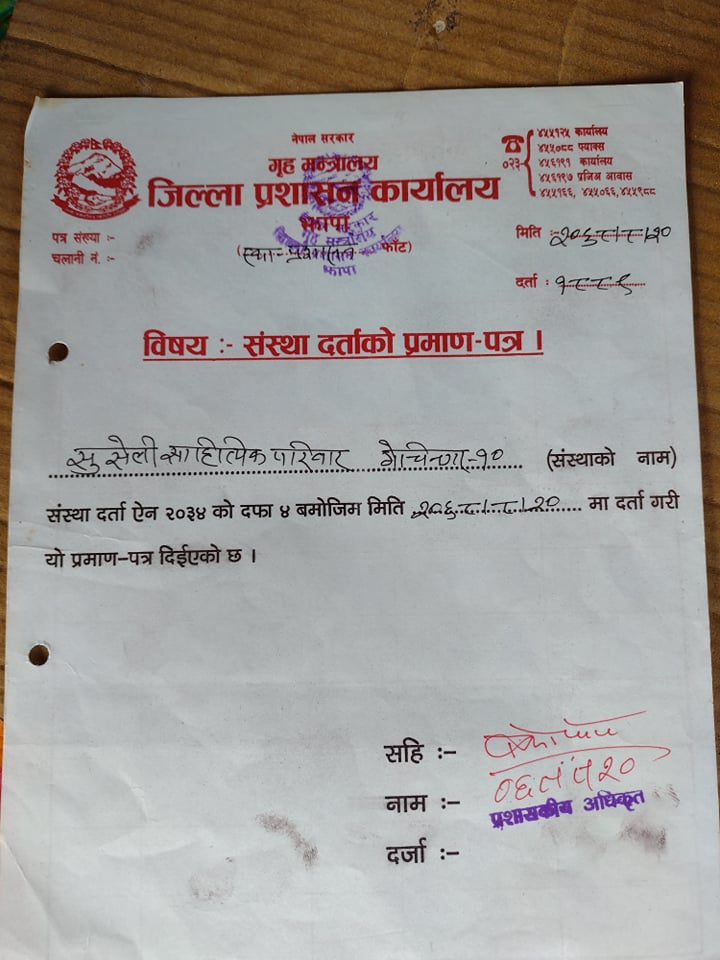 नेपाल सरकार
गृह मन्त्रालय
जिल्ला प्रशासन कार्यालय
झापा
(स्था-प्रशासन फाँट)
०२३-
४५५१२५ कार्यालय
४५५०८८ फ्याक्स
४५६१९१ कार्यालय
४५६१९७ प्रजिअ आवास
४५५१६६, ४५५०६६,४५५९८८
पत्र संख्या :-
चलानी नं. :-
मिति :- २०६८।८।२०
दर्ता : १८८९
विषय :- संस्था दर्ताको प्रमाण-पत्र ।
सुसेली साहित्यिक परिवार -१० (संस्थाको नाम)
संस्था दर्ता ऐन २०३४ को दफा ४ बमोजिम मिति २०६८।८।२० मा दर्ता गरी
यो प्रमाण-पत्र दिईएको छ ।
सहि :-
नाम :-
प्रशासकीय अधिकृत
दर्जा :-